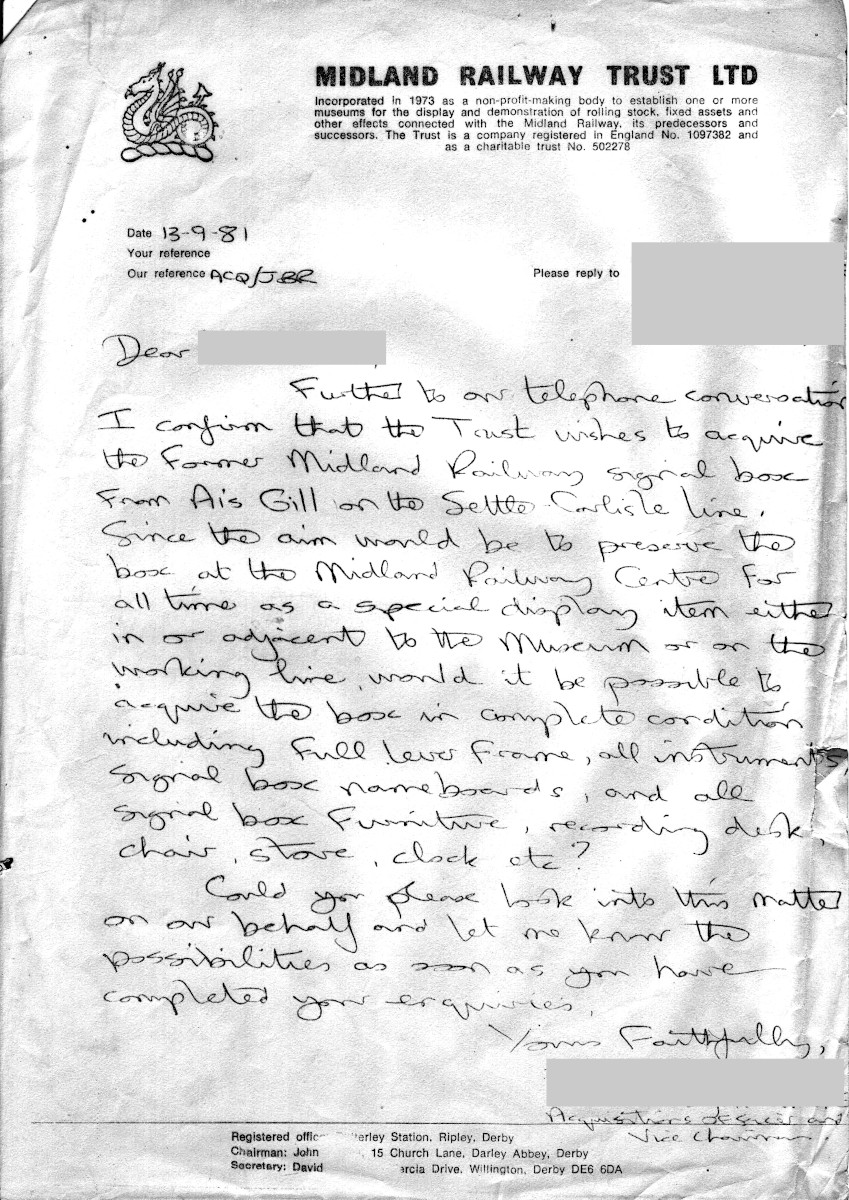 MIDLAND RAILWAY TRUST LTD
Incorporated in 1973 as a non-profit-making body to establish one or more
museums for the display and demonstration of rolling stock, fixed assets and
other effects connected with the Midland Railway, its predecessors and
successors. The Trust is a company registered in England No. 1097382 and
as a charitable trust No. 502278
Date 13-9-81
Your reference
Our reference ACQ/JBR
Please reply to
Dear
Further to our telephone conversation
I confirm that the Trust wishes to acquire
the Former Midland Railway signal box
From Ais Gill on the Settle-Carlisle line.
Since the aim would be to preserve the
box at the Midland Railway Centre for
all time as a special display item either
in or adjacent to the Museum or on the
working line, would it be possible to
acquire the box in complete condition
including Full lever Frame, all instruments,
signal box nameboards, and all
signal box Furniture, recording desk,
chair, stove, clock etc?
Could you please look into this matter
on our behalf and let me know the
possibilities as soon as you have
completed your enquiries.
Yours Faithfully,
Acquisitions Officer and
Vice Chairman.
Registered offic erley Station, Ripley, Derby
Chairman: John 15 Church Lane, Darley Abbey, Derby
Secretary: David ercia Drive, Willington, Derby DE6 6DA